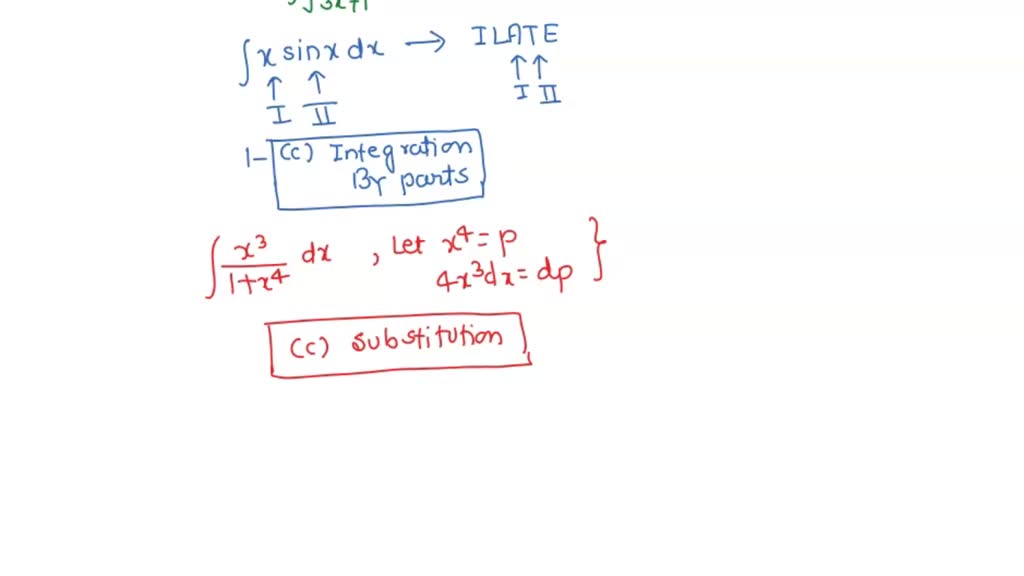 ∫ x sinx dx → ILATE
↑ ↑ ↑↑
I II I II
1- (c) Integration
By parts
∫ x³/(1+x⁴) dx , Let x⁴ = p }
4x³dx = dp
(c) Substitution